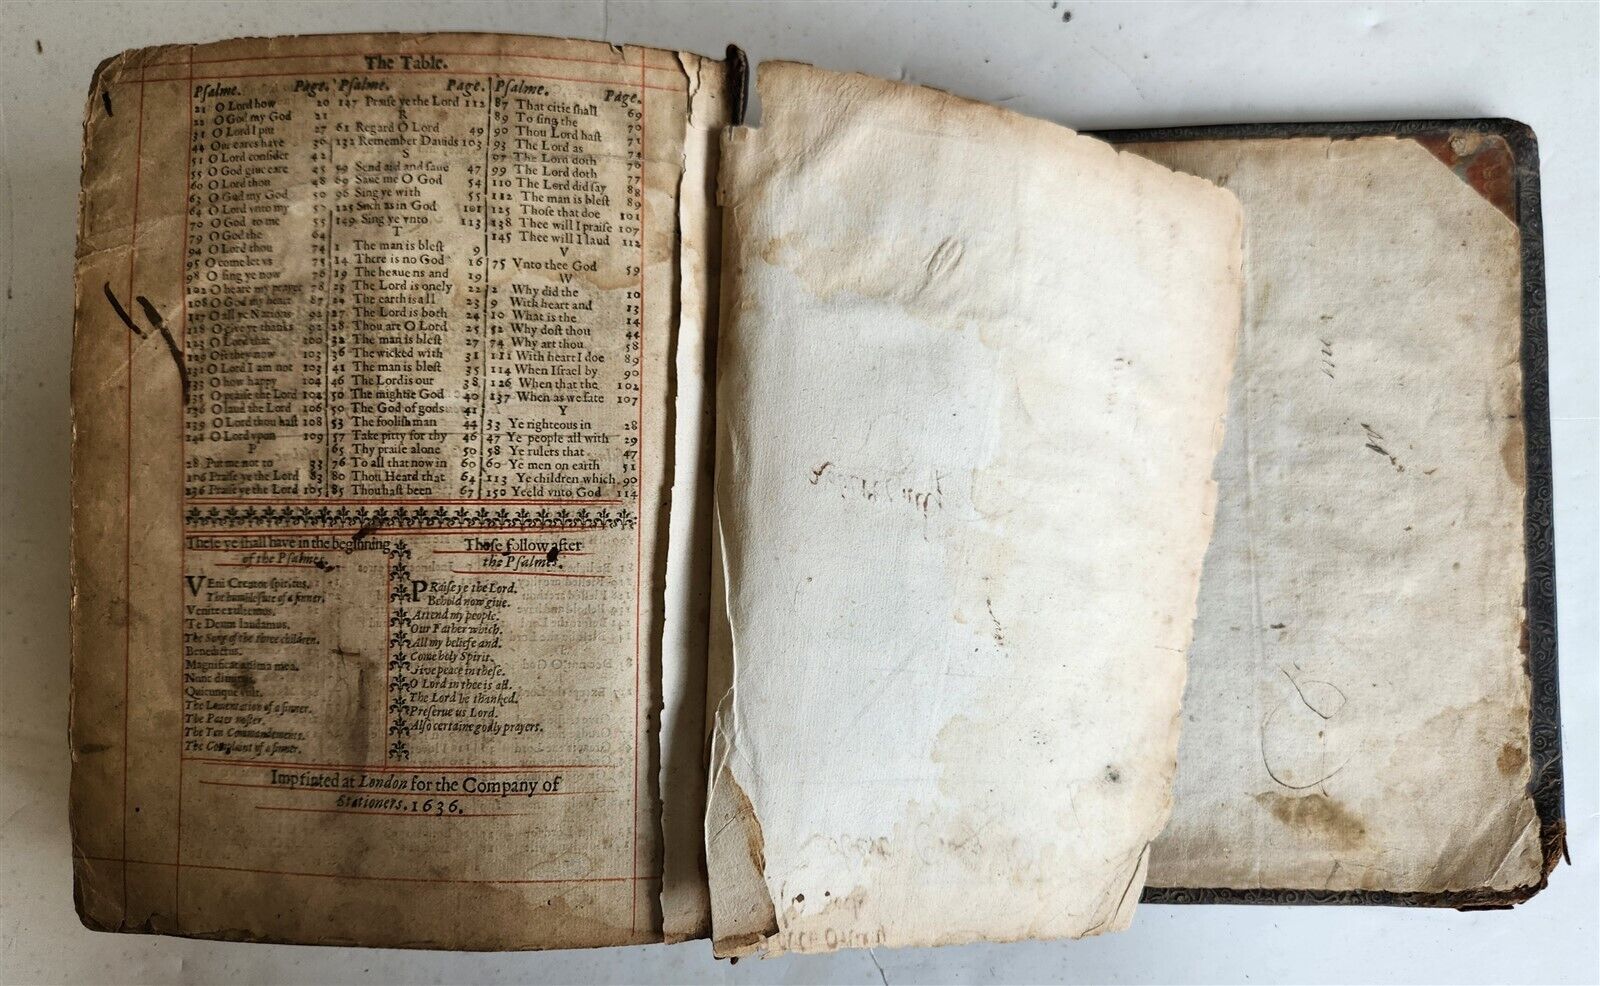 The Table.
Psalme. Page.
21 O Lord how 20
22 O God my God 21
31 O Lord I put 27
44 Our eares have 36
51 O Lord consider 42
55 O God give eare 45
60 O Lord thou 48
63 O God my God 50
64 O Lord vnto my 52
70 O God to me 55
79 O God the 64
94 O Lord thou 74
95 O come let vs 75
98 O sing ye now 76
102 O heare my prayer 78
108 O God my heart 87
117 O all ye Nations 92
118 O give ye thanks 92
123 O Lord that 100
129 Oft they now 103
131 O Lord I am not 103
133 O how happy 104
135 O praise the Lord 104
136 O laud the Lord 106
139 O Lord thou hast 108
141 O Lord vpon 109
P
28 Put me not to 33
106 Praise ye the Lord 83
136 Praise ye the Lord 105
Psalme. Page.
147 Praise ye the Lord 112
R
61 Regard O Lord 49
132 Remember Dauids 103
S
59 Send aid and saue 47
69 Saue me O God 54
96 Sing ye with 55
125 Such as in God 101
149 Sing ye vnto 113
T
1 The man is blest 9
14 There is no God 16
19 The heauens and 19
23 The Lord is onely 22
24 The earth is all 23
27 The Lord is both 24
28 Thou art O Lord 25
32 The man is blest 27
36 The wicked with 31
41 The man is blest 35
46 The Lord is our 38
50 The mightie God 40
50 The God of gods 41
53 The foolish man 44
57 Take pitty for thy 46
65 Thy praise alone 50
76 To all that now in 60
80 Thou Heard that 64
85 Thou hast been 67
Psalme. Page.
87 That citie shall 69
89 To sing the 70
90 Thou Lord hast 71
93 The Lord as 74
97 The Lord doth 76
99 The Lord doth 77
110 The Lord did say 88
112 The man is blest 89
125 Those that doe 101
138 Thee will I praise 107
145 Thee will I laud 112
V
75 Vnto thee God 59
W
2 Why did the 10
9 With heart and 13
10 What is the 14
52 Why dost thou 44
74 Why art thou 58
111 With heart I doe 89
114 When Israel by 90
126 When that the 102
137 When as we sate 107
Y
33 Ye righteous in 28
47 Ye people all with 29
58 Ye rulers that 47
60 Ye men on earth 51
113 Ye children which 90
150 Yeeld vnto God 114
These ye shall have in the beginning
of the Psalmes.
VEni Creator spiritus.
The humble sute of a sinner.
Venite exultemus.
Te Deum laudamus.
The Song of the three children.
Benedictus.
Magnificat anima mea.
Nunc dimittis.
Quicunque vult.
The Lamentation of a sinner.
The Pater noster.
The Ten Commandements.
The Complaint of a sinner.
Those follow after
the Psalmes.
PRaise ye the Lord.
Behold now give.
Attend my people.
Our Father which.
All my beliefe and.
Come holy Spirit.
Give peace in these.
O Lord in thee is all.
The Lord be thanked.
Preserue us Lord.
Also certaine godly prayers.
Imprinted at London for the Company of
Stationers. 1636.